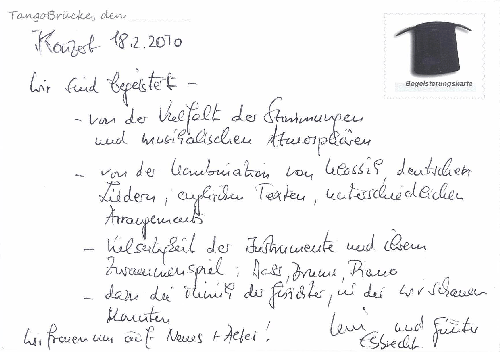 TangoBrücke, den
Konzert 18.2.2010
Begeisterungskarte
Wir sind begeistert –
- von der Vielfalt der Stimmungen
und musikalischen Atmosphären
- von der Kombination von Klassik, deutschen
Liedern, englischen Texten, unterschiedlichen
Arrangements
- Vielseitigkeit der Instrumente und ihrem
Zusammenspiel: Bass, Drums, Piano
- dazu die Mimik der Gesichter, in die wir schauen
konnten
Wir freuen uns auf Neues + Altes!
und Günter